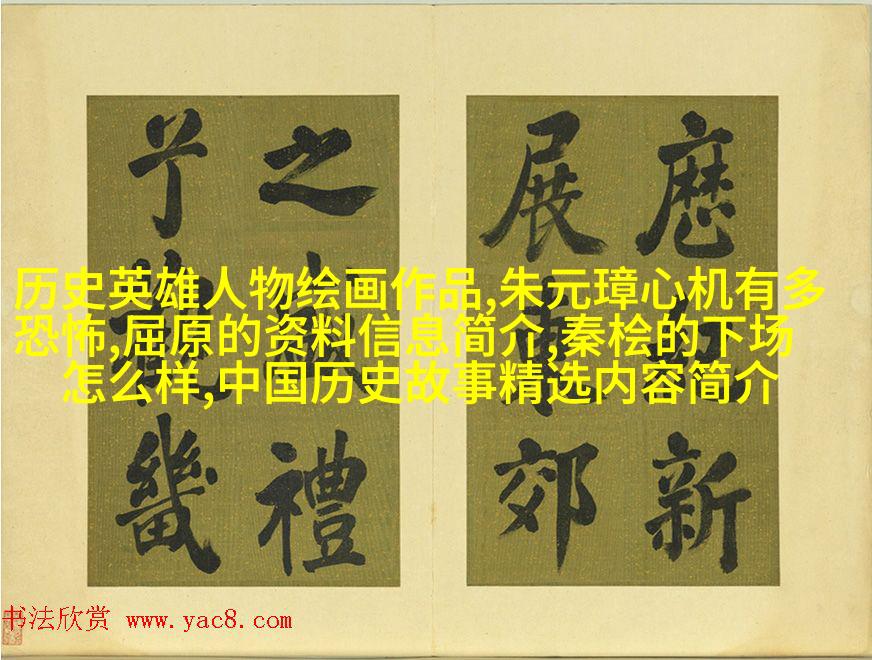 历史英雄人物绘画作品,朱元璋心机有多
恐怖,屈原的资料信息简介,秦桧的下场
怎么样,中国历史故事精选内容简介
新
展 郊
之 禮
畿
书法欣赏 www.yac8.com